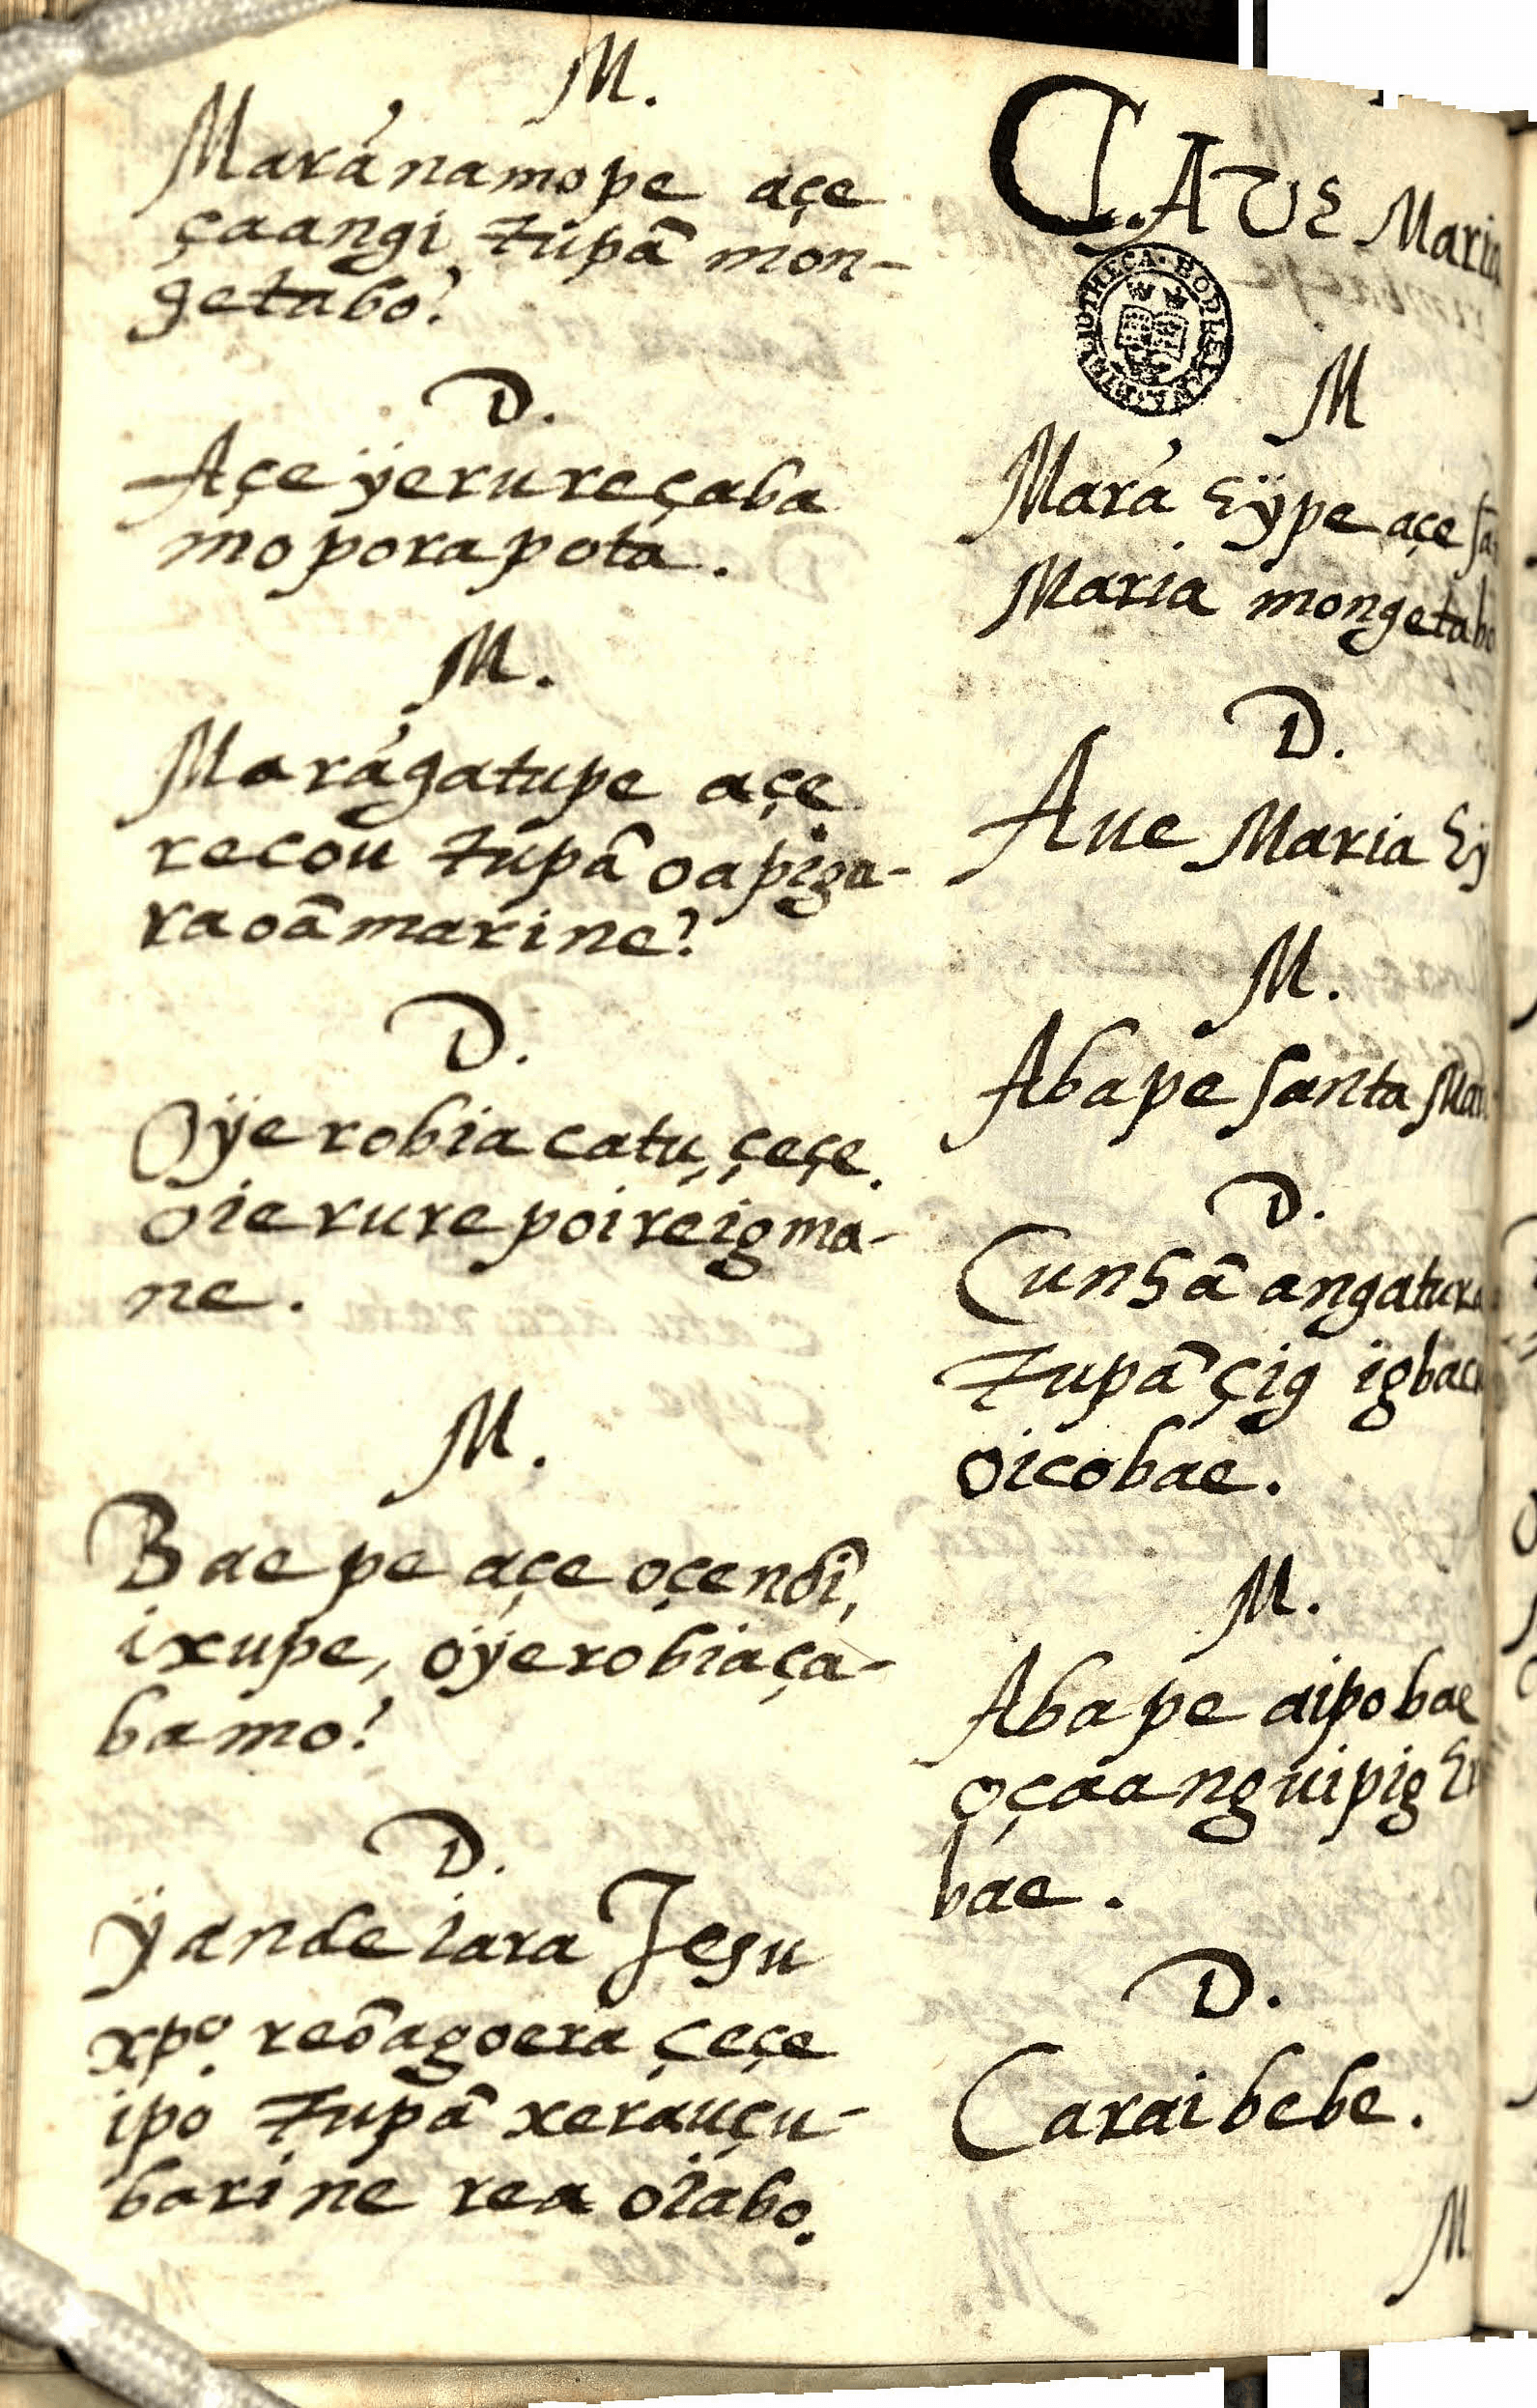 M.
Maránamope açe
çaangi Tupã mon-
getabo?
D.
Açe ÿerureçaba
moporapota.
M.
Marágatupe açe
recou Tupã oapiga-
raoãmarine?
D.
Oÿerobia catu, çeçe.
oierurepoireigma-
ne.
M.
Baepe açe oçendî,
ixupe, oÿerobiaça-
bamo?
D.
Ÿande iara Jesu
xpo. reõagoera çeçe
ipo Tupã xerauçu-
barine rea oiabo.
C. AVE Maria
M
Mará hÿpe açe
Maria mongetabo
D.
Aue Maria
M.
Abape santa
D.
Cunhã
Tupã çig
oicobae.
M.
Abape aipobae
oçaanguipig
bae.
D.
Caraibebe.
M